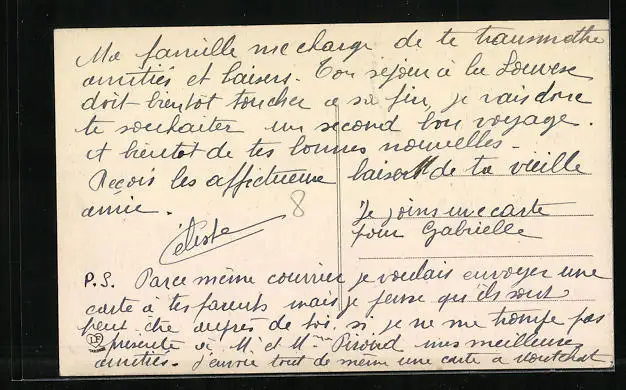 Ma famille me charge de te transmettre
amitiés et baisers. Ton séjour à la Louvesc
doit bientôt toucher a sa fin, je vais donc
te souhaiter un second bon voyage.
et bientôt de tes bonnes nouvelles.
Reçois les affectueux baisers de ta vieille
amie.
8
Céleste
Je joins une carte
pour Gabrielle
P.S. Par ce même courrier je voulais envoyer une
carte à tes parents mais je pense qu'ils sont
peut être auprès de toi, si je ne me trompe pas
présente à Mr et Mme mes meilleures
amitiés. J'envoie tout de même une carte à